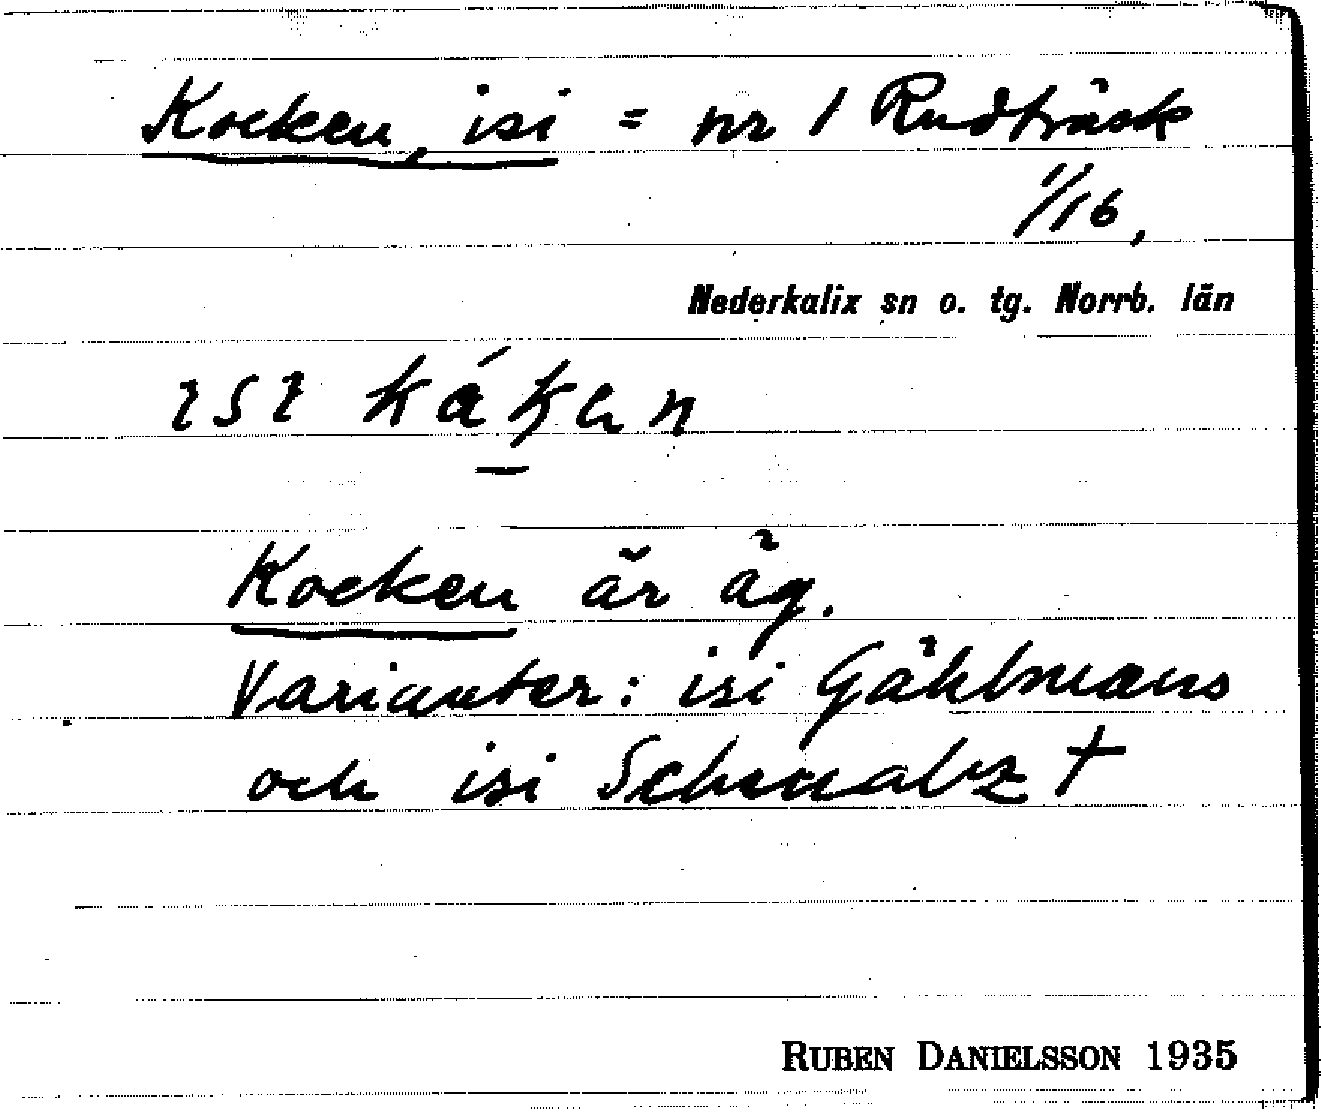 Kocken, isi = nr 1 Rudträsk
1/16,
Nederkalix sn o. tg. Norrb. län
ɩsɩ kákan
Kocken är äg.
Varianter: isi Gählmans
och isi Schmalz †
RUBEN DANIELSSON 1935